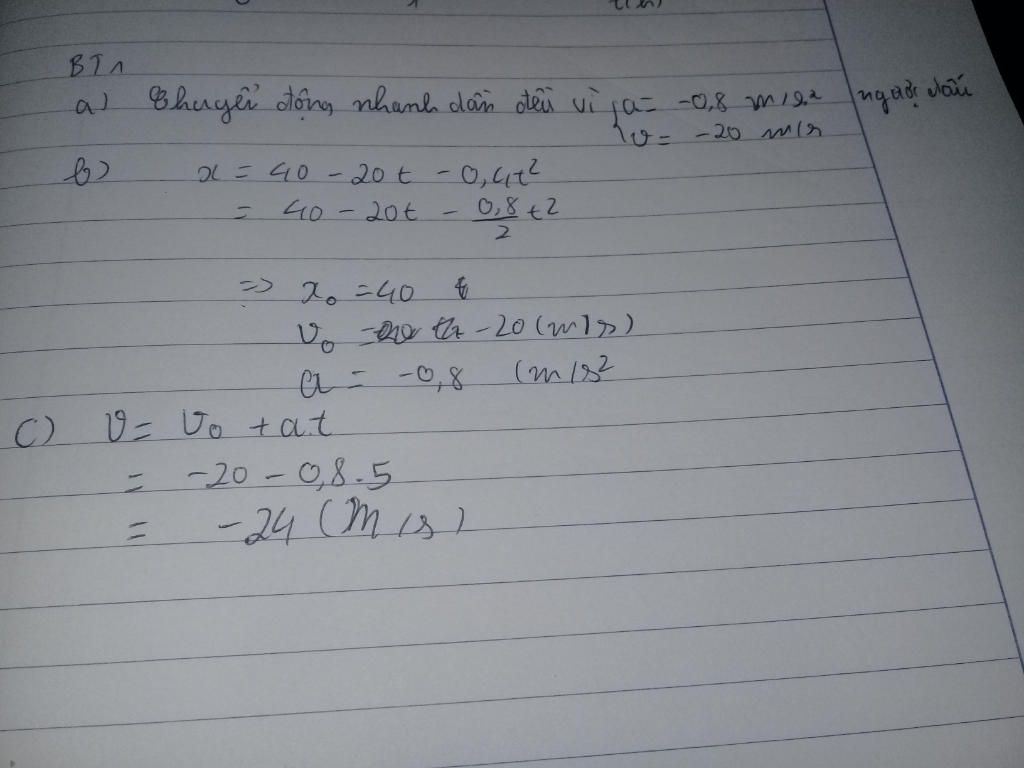 t(h)
BT1
a) Chuyển động nhanh dần đều vì { a = -0,8 m/s² người dấu
v = -20 m/s
b) x = 40 - 20t - 0,4t²
= 40 - 20t - 0,8/2 t²
=> x₀ = 40
v₀ = -20 (m/s)
a = -0,8 (m/s²
c) v = v₀ + a.t
= -20 - 0,8.5
= -24 (m/s)